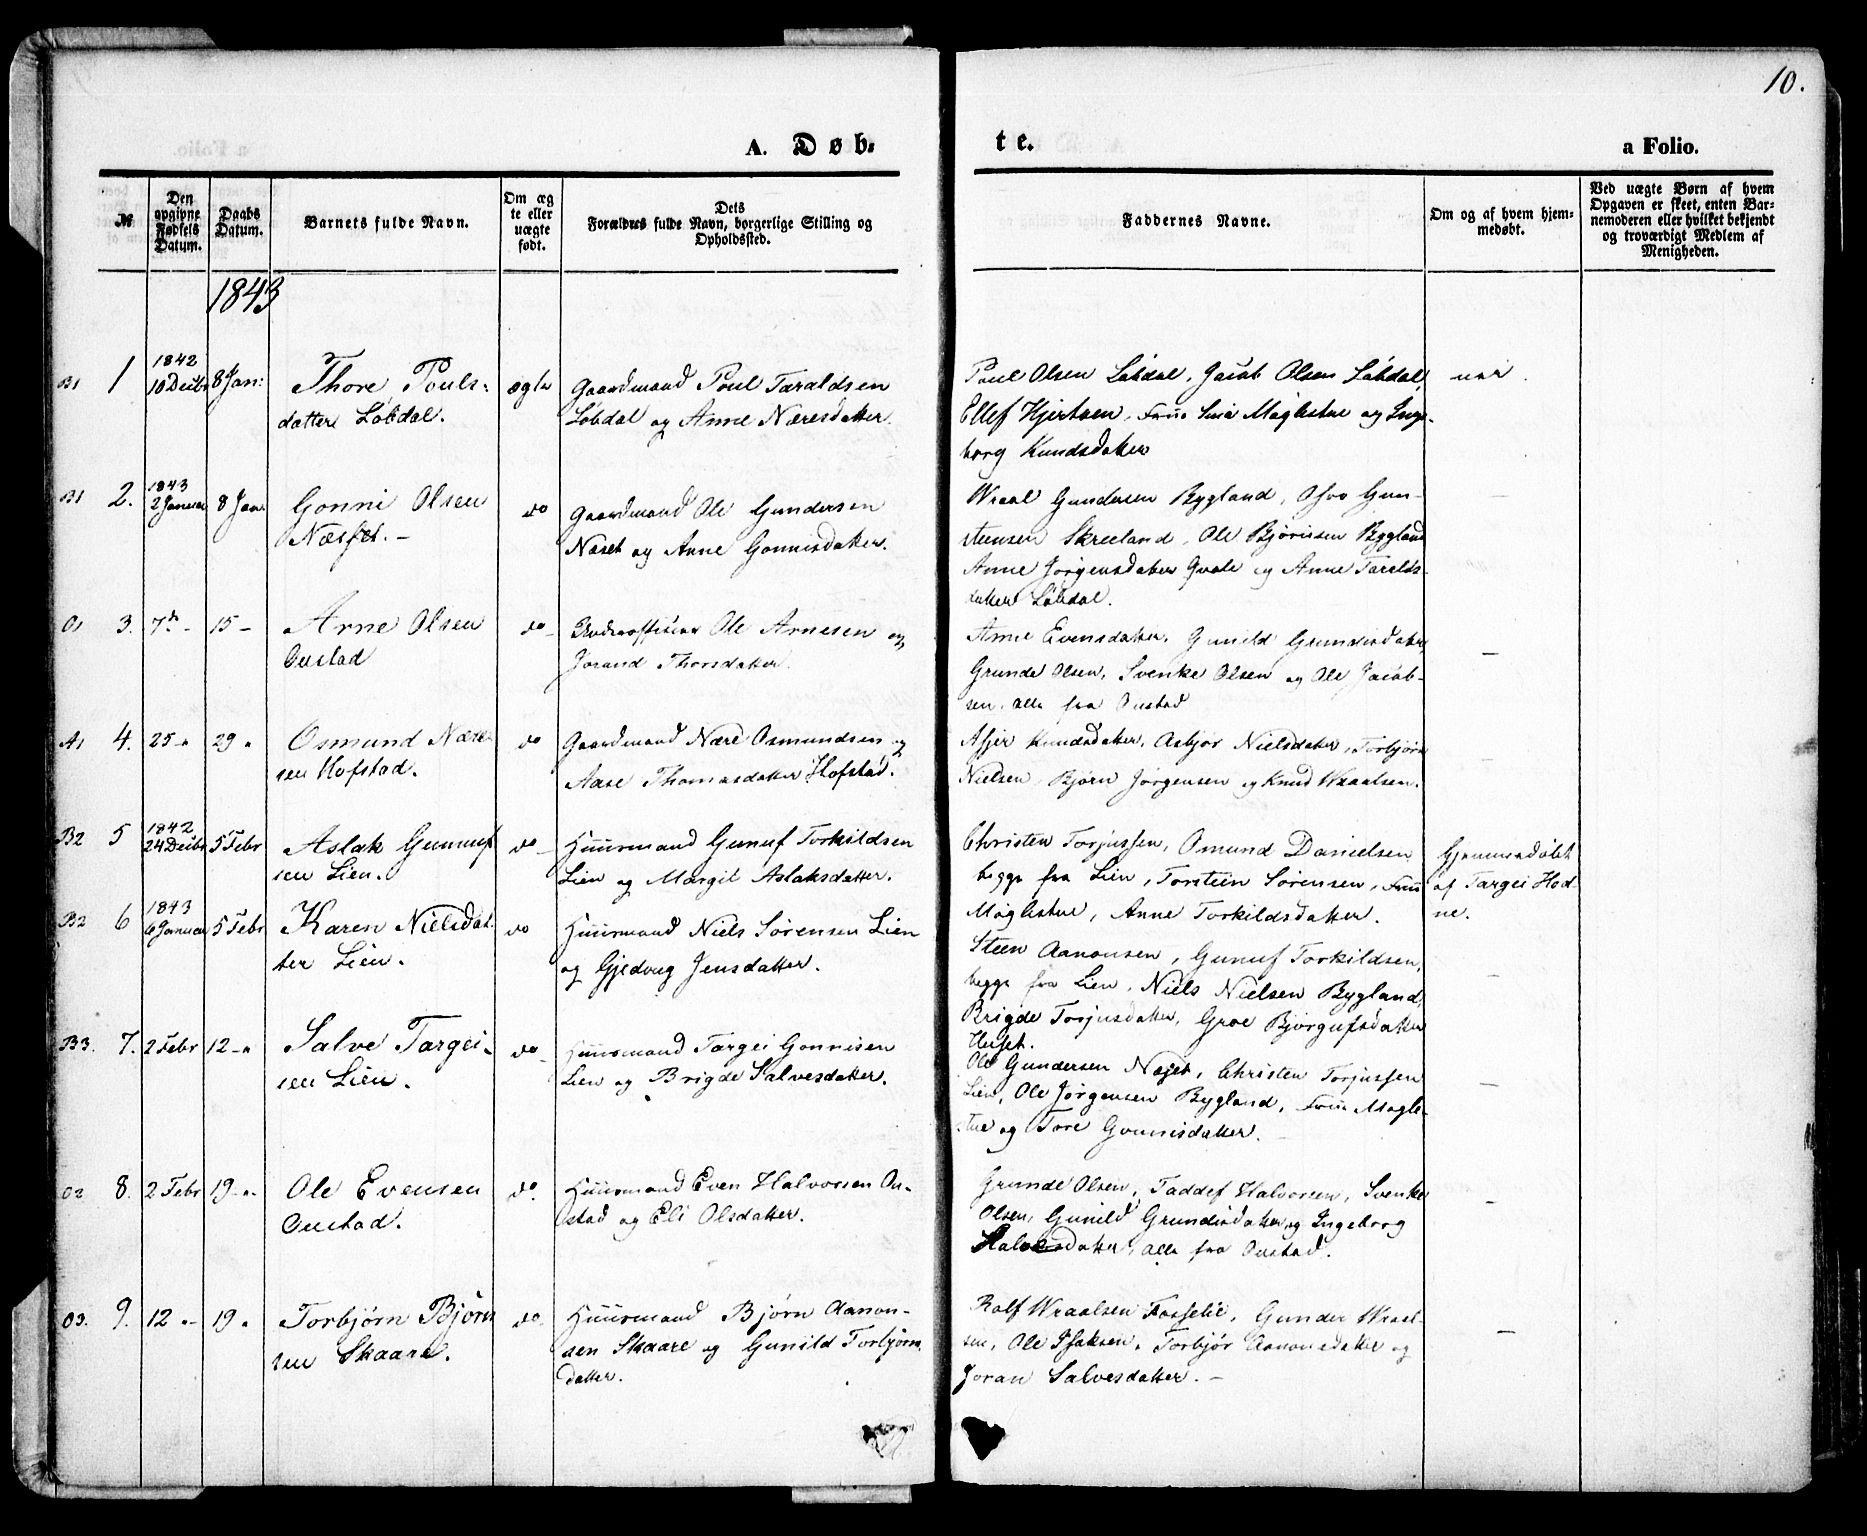 10.
A. Døb=
te.
a Folio.
№
Den
opgivne
Fødsels
Datum.
Daabs
Datum.
Barnets fulde Navn.
Om æg
te eller
uægte
født.
Dets
Forældres fulde Navn, borgerlige Stilling og
Opholdssted.
Faddernes Navne.
Om og af hvem hjem-
medøbt.
Ved uægte Børn af hvem
Opgaven er skeet, enten Bar-
nemoderen eller hvilket bekjendt
og troværdigt Medlem af
Menigheden.
1843
B1 1
1842
10 Decbr
8 Jan:
Thore Pouls-
datter Løbdal.
ægte
Gaardmand Poul Taraldsen
Løbdal og Anne Næresdatter.
Poul Olsen Løbdal, Jacob Olsen Løbdal,
Ellef Hjertsen, Møglestue og Inge-
borg Knudsdatter
B1 2.
1843
2 Januar
8 Jan
Gonni Olsen
Næsset. –
do
Gaardmand Ole Gundersen
Næset og Anne Gonnisdatter.
Wraal Gundersen Bygland, Gun-
steensen Skreeland, Ole Bjørnsen Bygland
Anne Jørgensdatter og Anne Taralds-
datter Løbdal.
O1 3.
7de –
15 –
Arne Olsen
Oustad
do –
Underofficier Ole Arnesen og
Jorand Thorsdatter.
Anne Evensdatter, Gunild Grundesdatter,
Grunde Olsen, Svenke Olsen og Ole Jacob-
sen, alle fra Oustad
–
A1 4.
25 –
29 "
Osmund Nære-
sen Hofstad.
do
Gaardmand Nære Osmundsen og
Aase Thomasdatter Hofstad.
Knudsdatter, Asbjør Nielsdatter, Torbjørn
Nielsen, Bjørn Jørgensen og Knud Wraalsen.
B2 5
1842
24 Decbr
5 Febr
Aslak Gunuf-
sen Lien.
do –
Huusmand Gunuf Torkildsen
Lien og Margit Aslaksdatter.
Christen Torjussen, Osmund Danielsen
begge fra Lien, Torstein Sørensen,
Møglestue, Anne Torkildsdatter.
Hjemmedøbt
af Targei Hod-
ne.
B2 6
1843
6 Januar
5 Febr
Karen Nielsdat-
ter Lien.
do
Huusmand Niels Sørensen Lien
og Gjedvug Jensdatter.
Steen Aanonsen, Gunuf Torkildsen,
begge fra Lien, Niels Nielsen Bygland,
Brigde Torjusdatter, Groe Bjørgufsdatter
B3. 7.
2 Febr
12 –
Salve Targei-
sen Lien.
do –
Huusmand Targei Gonnisen
Lien og Brigde Salvesdatter.
Ole Gundersen Næset, Christen Torjussen
Lien, Ole Jørgensen Bygland, Møgle-
stue og Tore Gonnisdatter.
–
O2 8.
2 Febr
19 –
Ole Evensen
Oustad.
do.
Huusmand Even Halvorsen Ou-
stad og Eli Olsdatter.
Grunde Olsen, Taddef Halvorsen, Svenke
Olsen, Gunild Grundesdatter og Ingeborg
Halvorsdatter, alle fra Oustad.
–
O3. 9.
12 –
19 "
Torbjørn Bjørn
sen Skaare.
do –
Huusmand Bjørn Aanon-
sen Skaare og Gunild Torbjørns
datter.
Rolf Wraalsen Fosselie, Gunder Wraal-
sen, Ole Isaksen, Torbjør Aanonsdatter og
Joran Salvesdatter. –
–